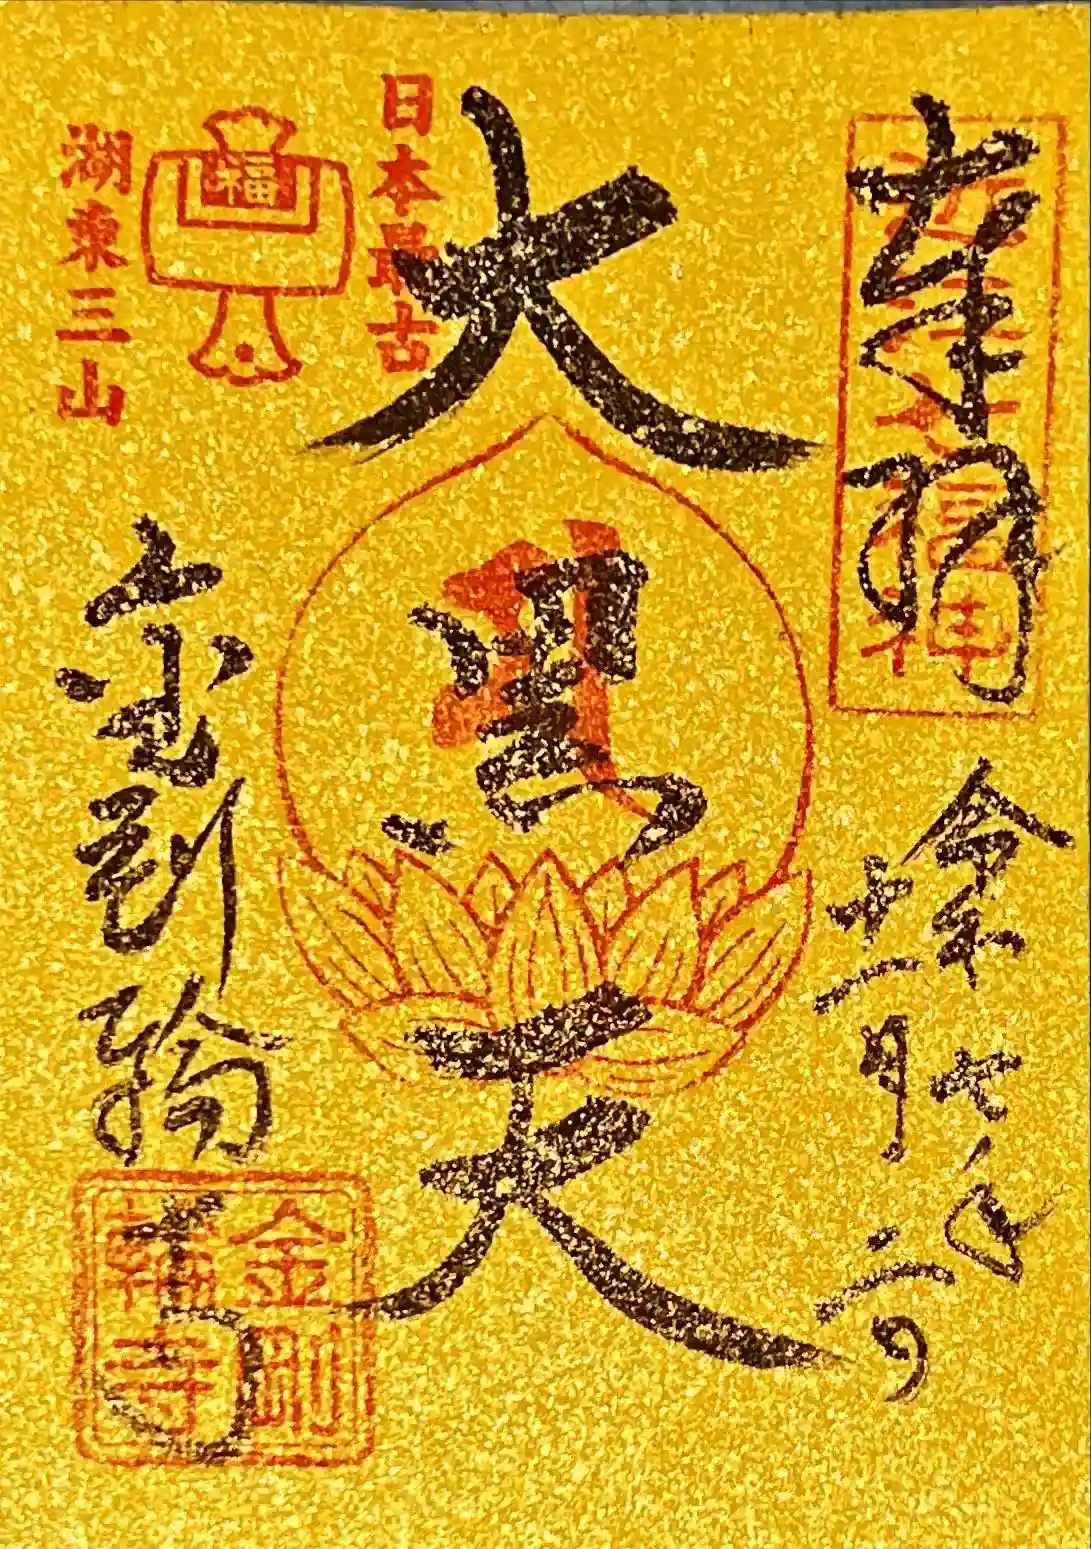 奉拝
近江七福神
令和七年
十一月二日
大黒天
日本最古
福
湖東三山
金剛輪寺
金剛
輪寺